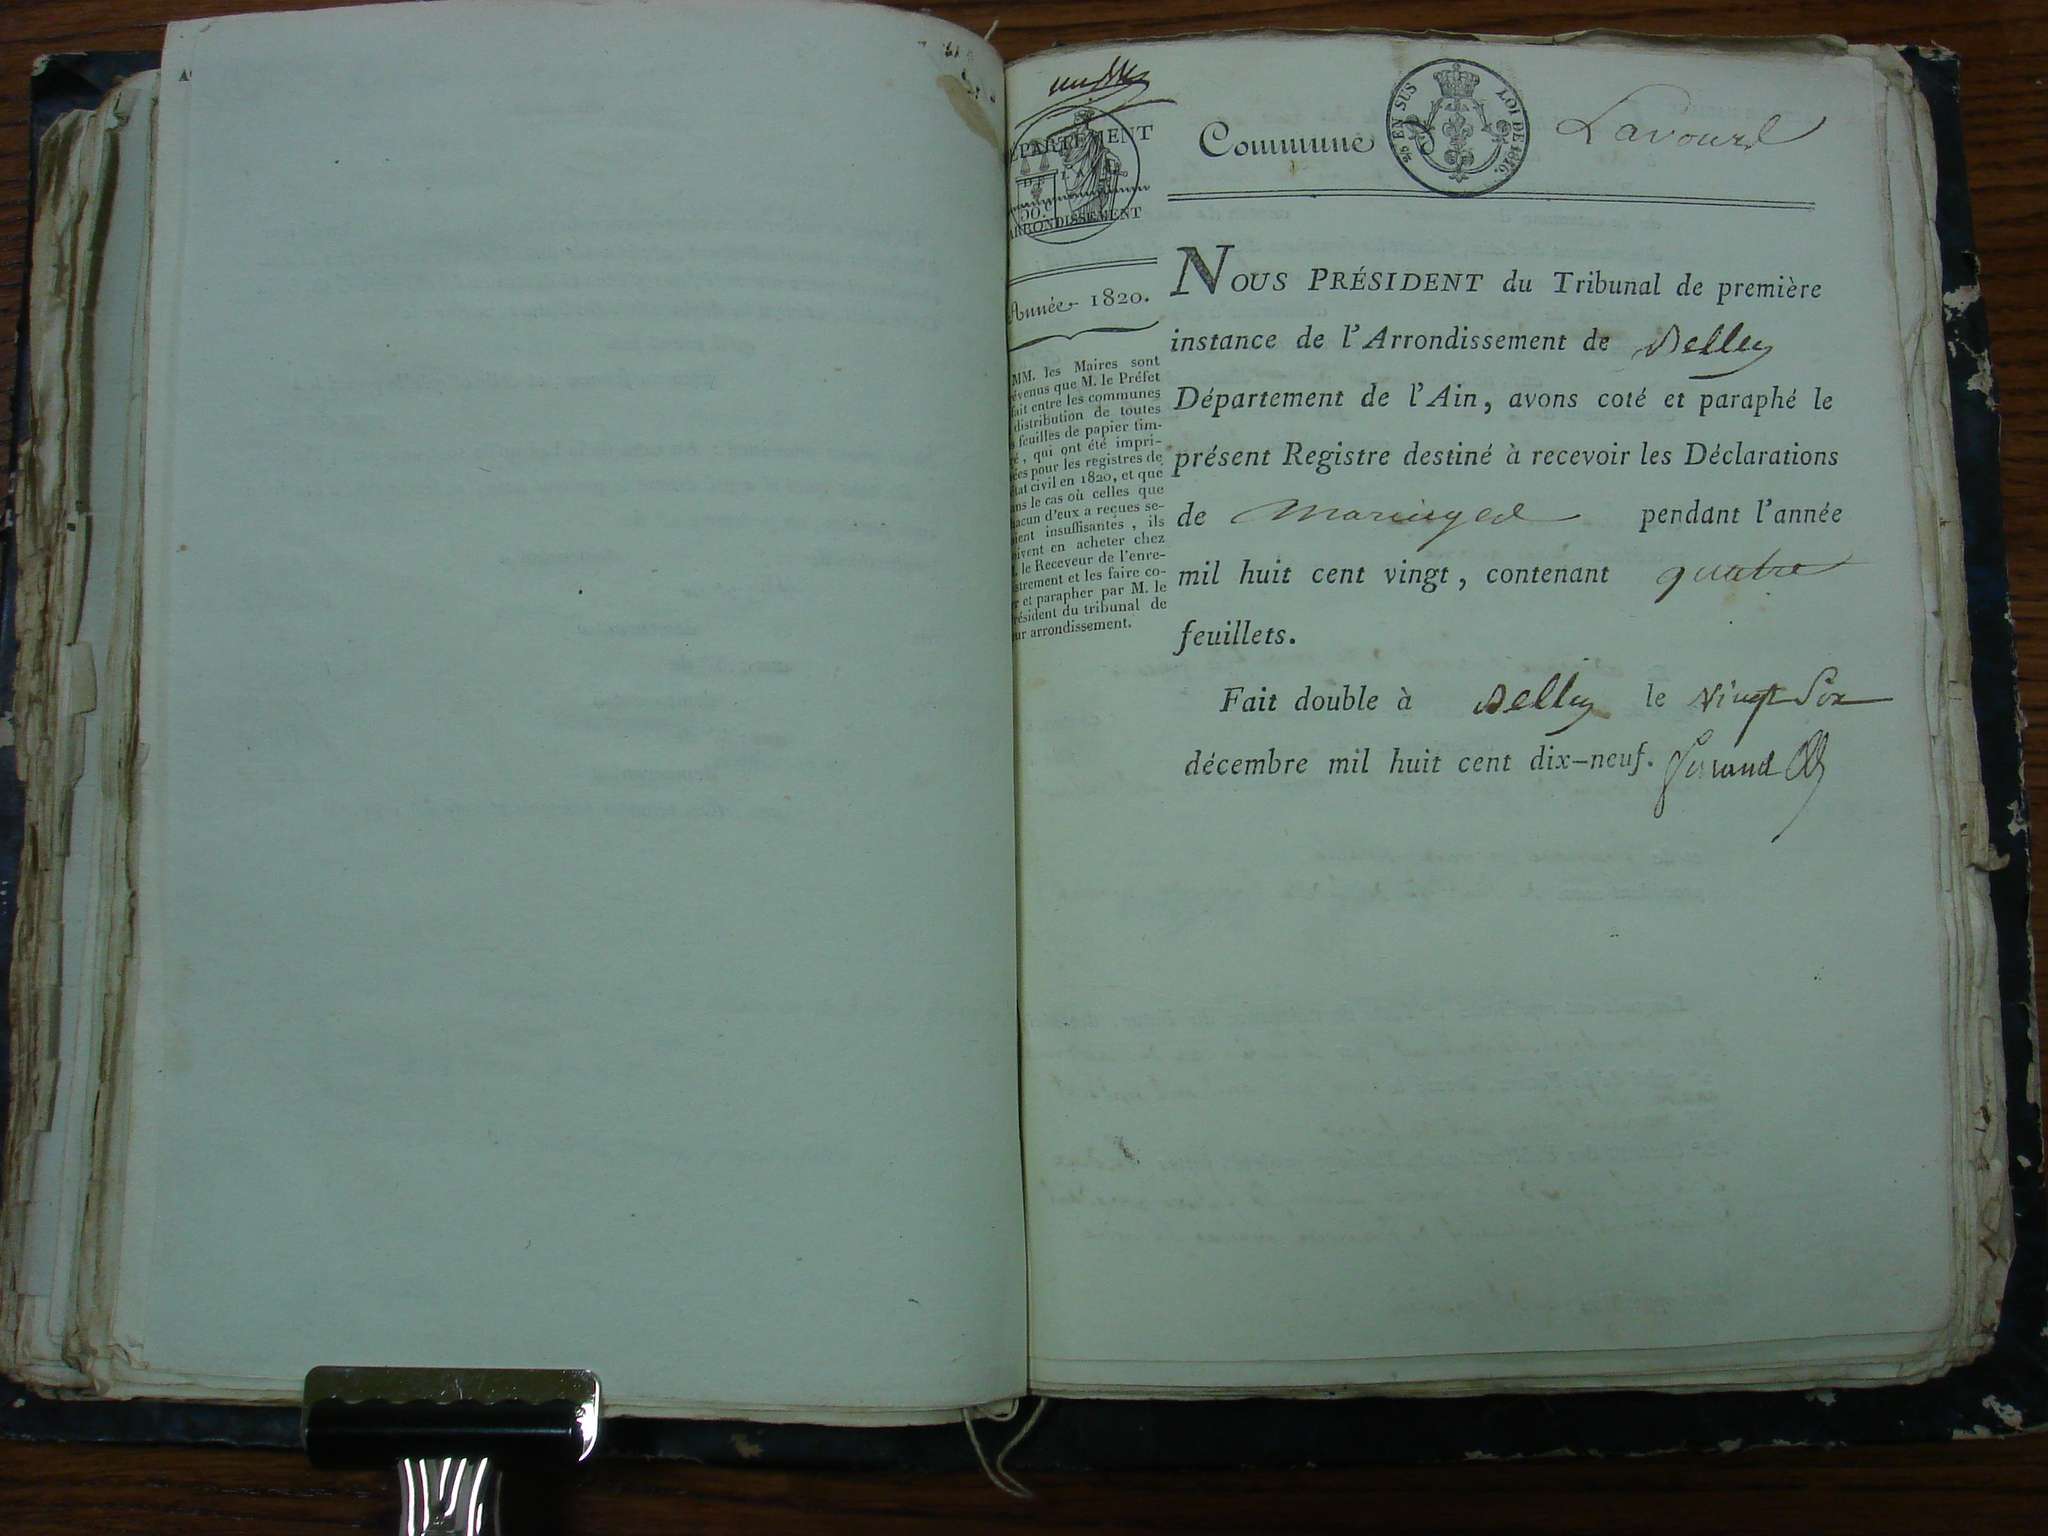 DÉPARTEMENT
DE LA
50.
ARRONDISSEMENT
Année 1820.
MM. les Maires sont
évenus que M. le Préfet
fait entre les communes
distribution de toutes
feuilles de papier tim-
é, qui ont été impri-
ées pour les registres de
état civil en 1820, et que
ans le cas où celles que
hacun d'eux a reçues se-
oient insuffisantes, ils
oivent en acheter chez
. le Receveur de l'enre-
istrement et les faire co-
r et parapher par M. le
résident du tribunal de
ur arrondissement.
Commune de Lavours
EN SUS LOI DE 1816.
NOUS PRÉSIDENT du Tribunal de première
instance de l'Arrondissement de Belley
Département de l'Ain, avons coté et paraphé le
présent Registre destiné à recevoir les Déclarations
de mariages pendant l'année
mil huit cent vingt, contenant quatre
feuillets.
Fait double à Belley le Vingt Six
décembre mil huit cent dix-neuf.